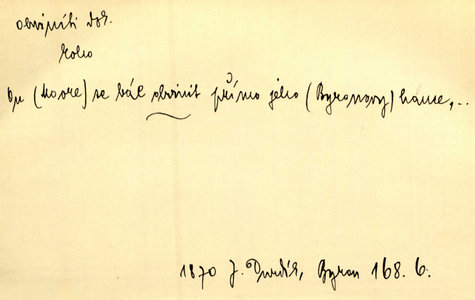 obviniti dok.
koho
On (Moore) se bál obvinit přímo jeho (Byronovy) hance,..
1870 J. Durdík, Byron 168. 6.